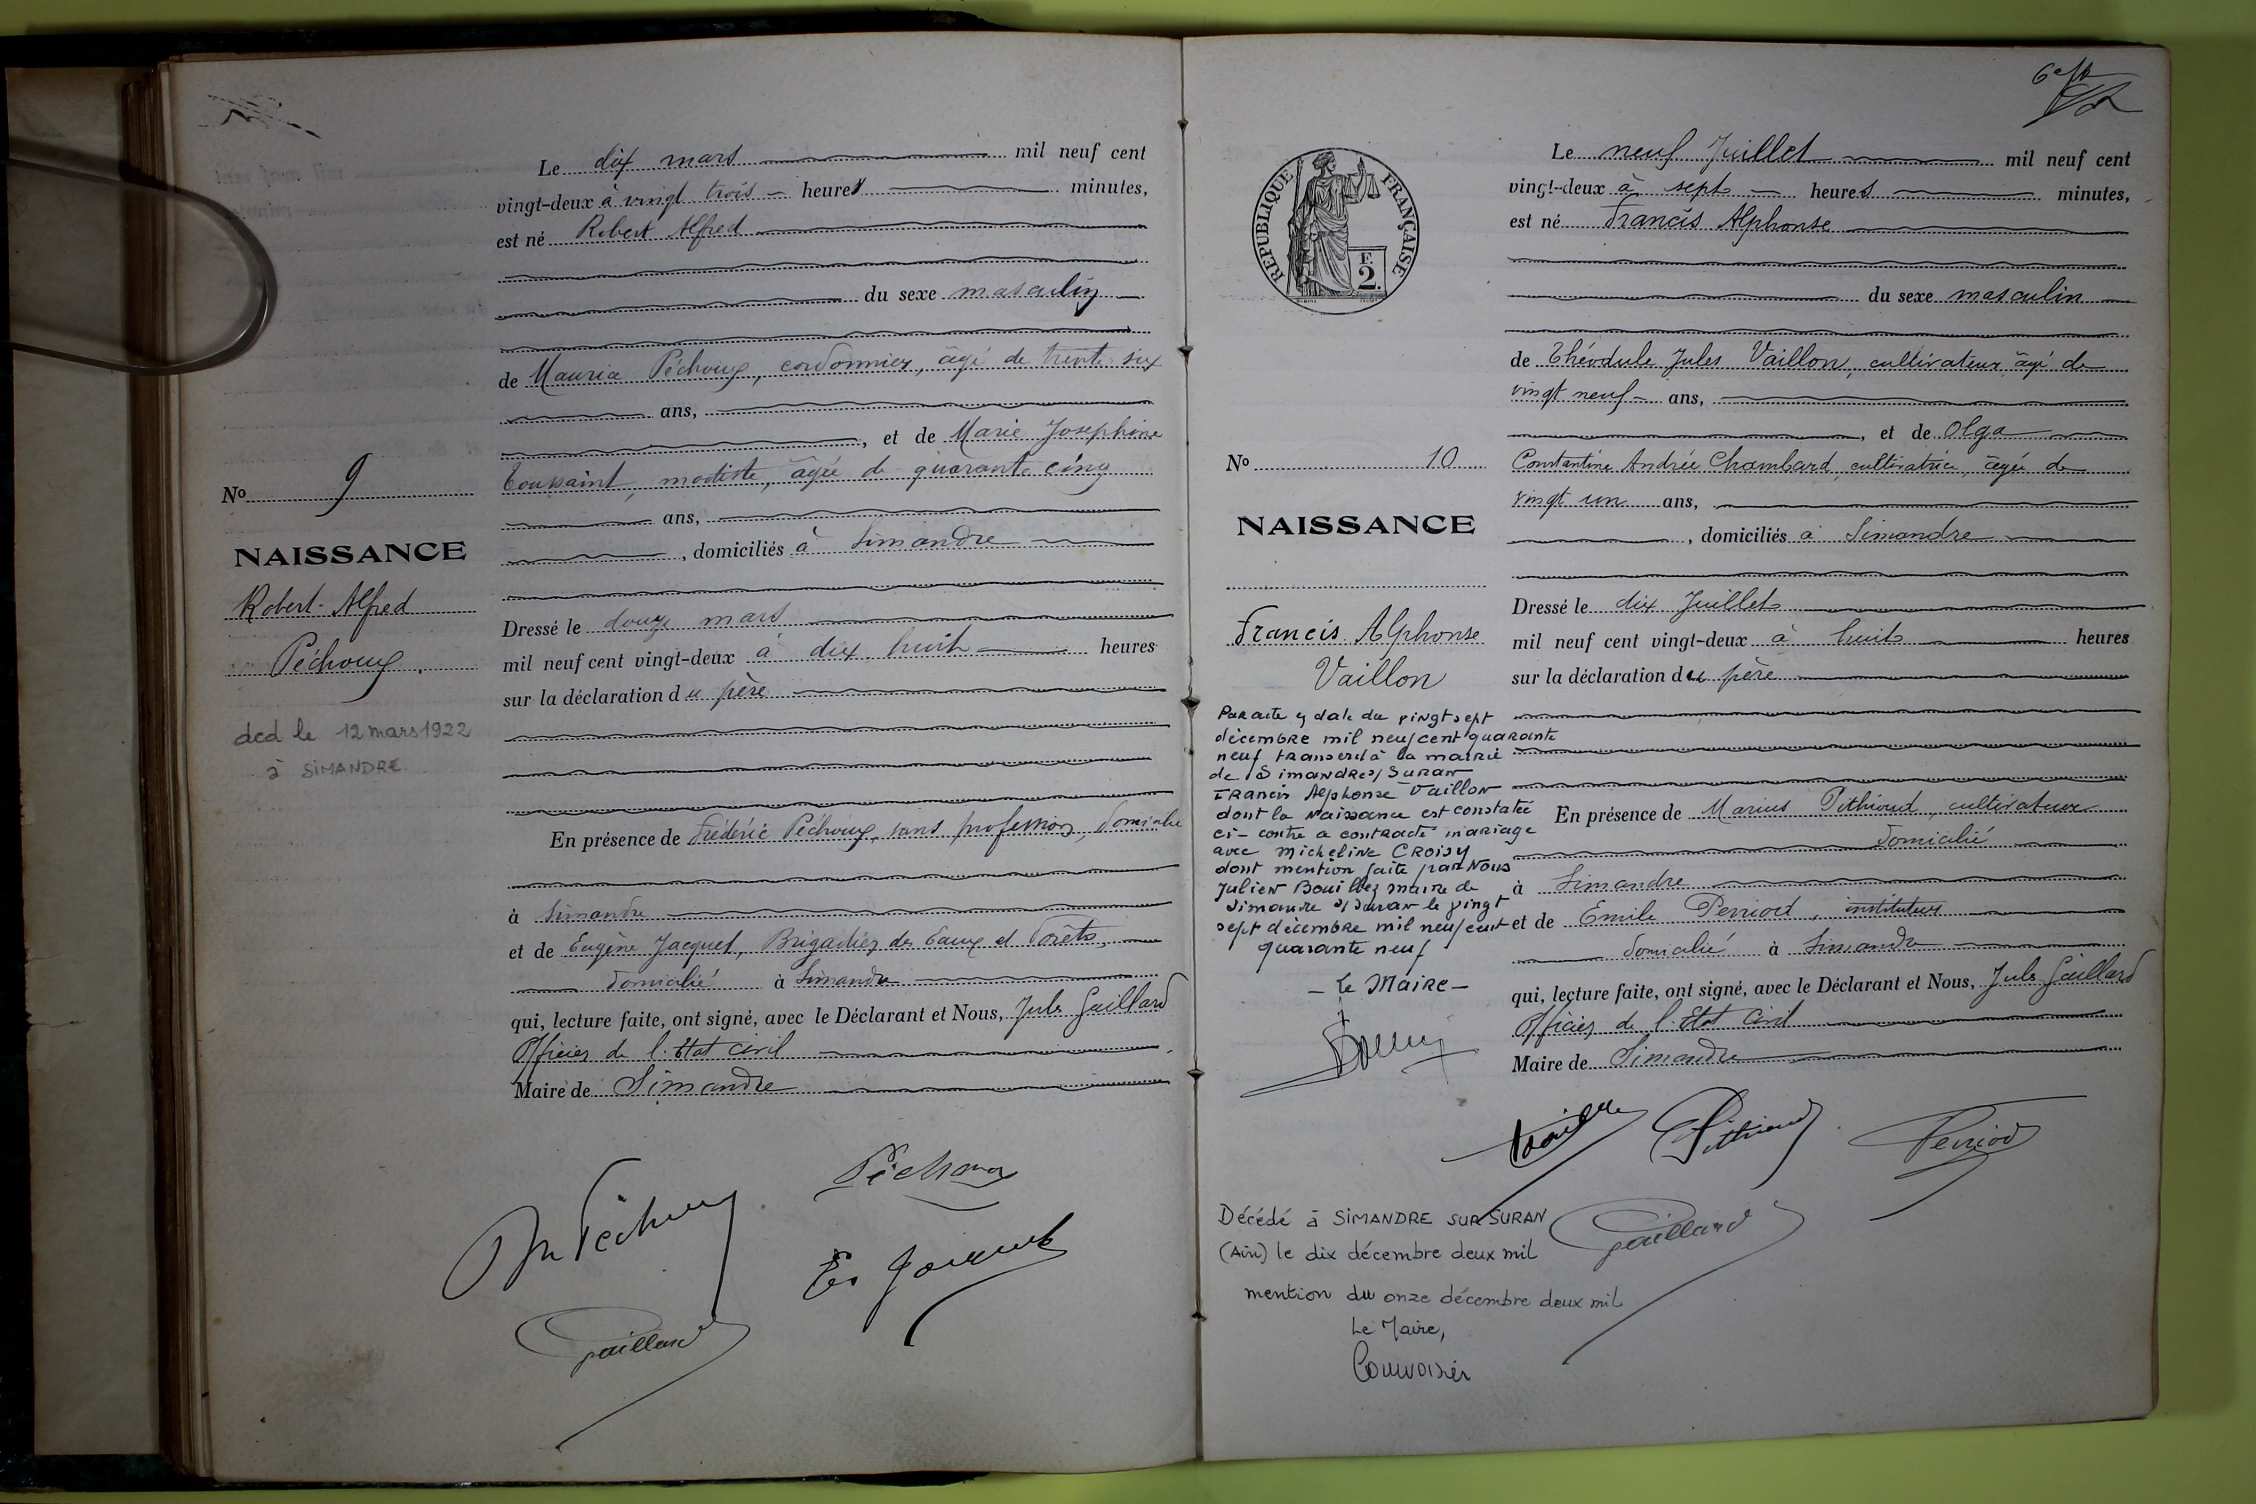 Le dix mars mil neuf cent
vingt-deux à vingt trois heures minutes,
est né Robert Alfred
du sexe masculin
de Maurice Péchoux, cordonnier, âgé de trente six
ans,
, et de Marie Josephine
Toussaint, modiste, âgée de quarante cinq
ans,
, domiciliés à Simandre
Dressé le douze mars
mil neuf cent vingt-deux à dix huit heures
sur la déclaration du père
En présence de Frédéric Péchoux, sans profession, domicilié
à Simandre
et de Eugène Jacquet, Brigadier des Eaux et Forêts,
domicilié à Simandre
qui, lecture faite, ont signé, avec le Déclarant et Nous, Jules Gaillard
Officier de l'Etat civil
Maire de Simandre
No 9
NAISSANCE
Robert Alfred
Péchoux.
dcd le 12 mars 1922
à SIMANDRE
Péchoux
Péchoux
Jacquet
Gaillard
REPUBLIQUE FRANÇAISE
F.
2.
Le neuf Juillet mil neuf cent
vingt-deux à sept heures minutes,
est né Francis Alphonse
du sexe masculin
de Théodule Jules Vaillon, cultivateur âgé de
vingt neuf ans,
, et de Olga
Constantine Andrée Chambard, cultivatrice, âgée de
vingt un ans,
, domiciliés à Simandre
Dressé le dix Juillet
mil neuf cent vingt-deux à huit heures
sur la déclaration du père
En présence de Marius Pithioud, cultivateur
domicilié
à Simandre
et de Emile Perriod, instituteur
domicilié à Simandre
qui, lecture faite, ont signé, avec le Déclarant et Nous, Jules Gaillard
Officier de l'Etat Civil
Maire de Simandre
No 10
NAISSANCE
Francis Alphonse
Vaillon
Par acte en date du vingt sept
décembre mil neuf cent quarante
neuf transcrit à la mairie
de Simandre s/ Suran
Francis Alphonse Vaillon
dont la naissance est constatée
ci-contre a contracté mariage
avec Micheline CROISY
dont mention faite par Nous
Julien Bouillez maire de
Simandre s/ Suran le vingt
sept décembre mil neuf cent
quarante neuf
- Le Maire -
Pithioud
Perriod
Gaillard
Décédé à SIMANDRE SUR SURAN
(Ain) le dix décembre deux mil
mention du onze décembre deux mil
Le Maire,
Couvoisier